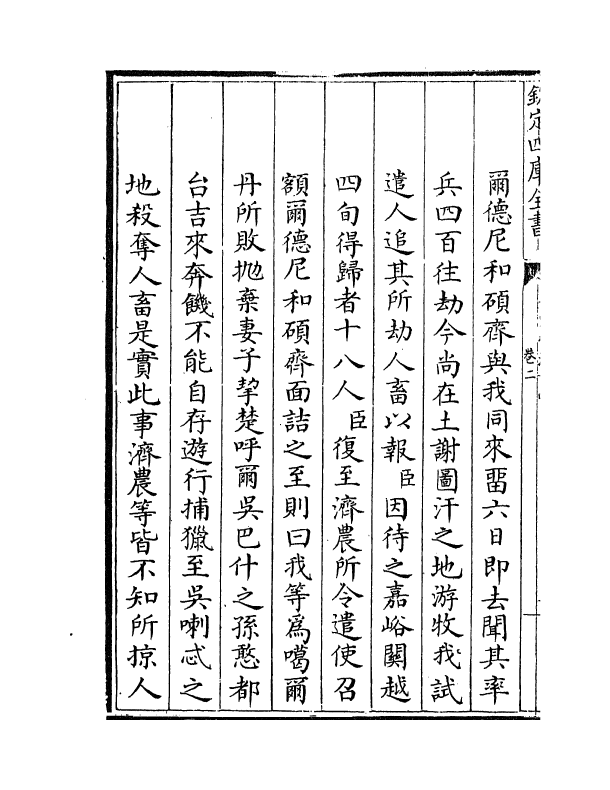 欽定四庫全書
卷二
爾德尼和碩齊與我同來畱六日即去聞其率
兵四百往劫今尚在土謝圖汗之地游牧我試
遣人追其所劫人畜以報臣因待之嘉峪關越
四旬得歸者十八人臣復至濟農所令遣使召
額爾德尼和碩齊面詰之至則曰我等為噶爾
丹所敗拋棄妻子挈楚呼爾吳巴什之孫憨都
台吉來奔饑不能自存遊行捕獵至吳喇忒之
地殺奪人畜是實此事濟農等皆不知所掠人